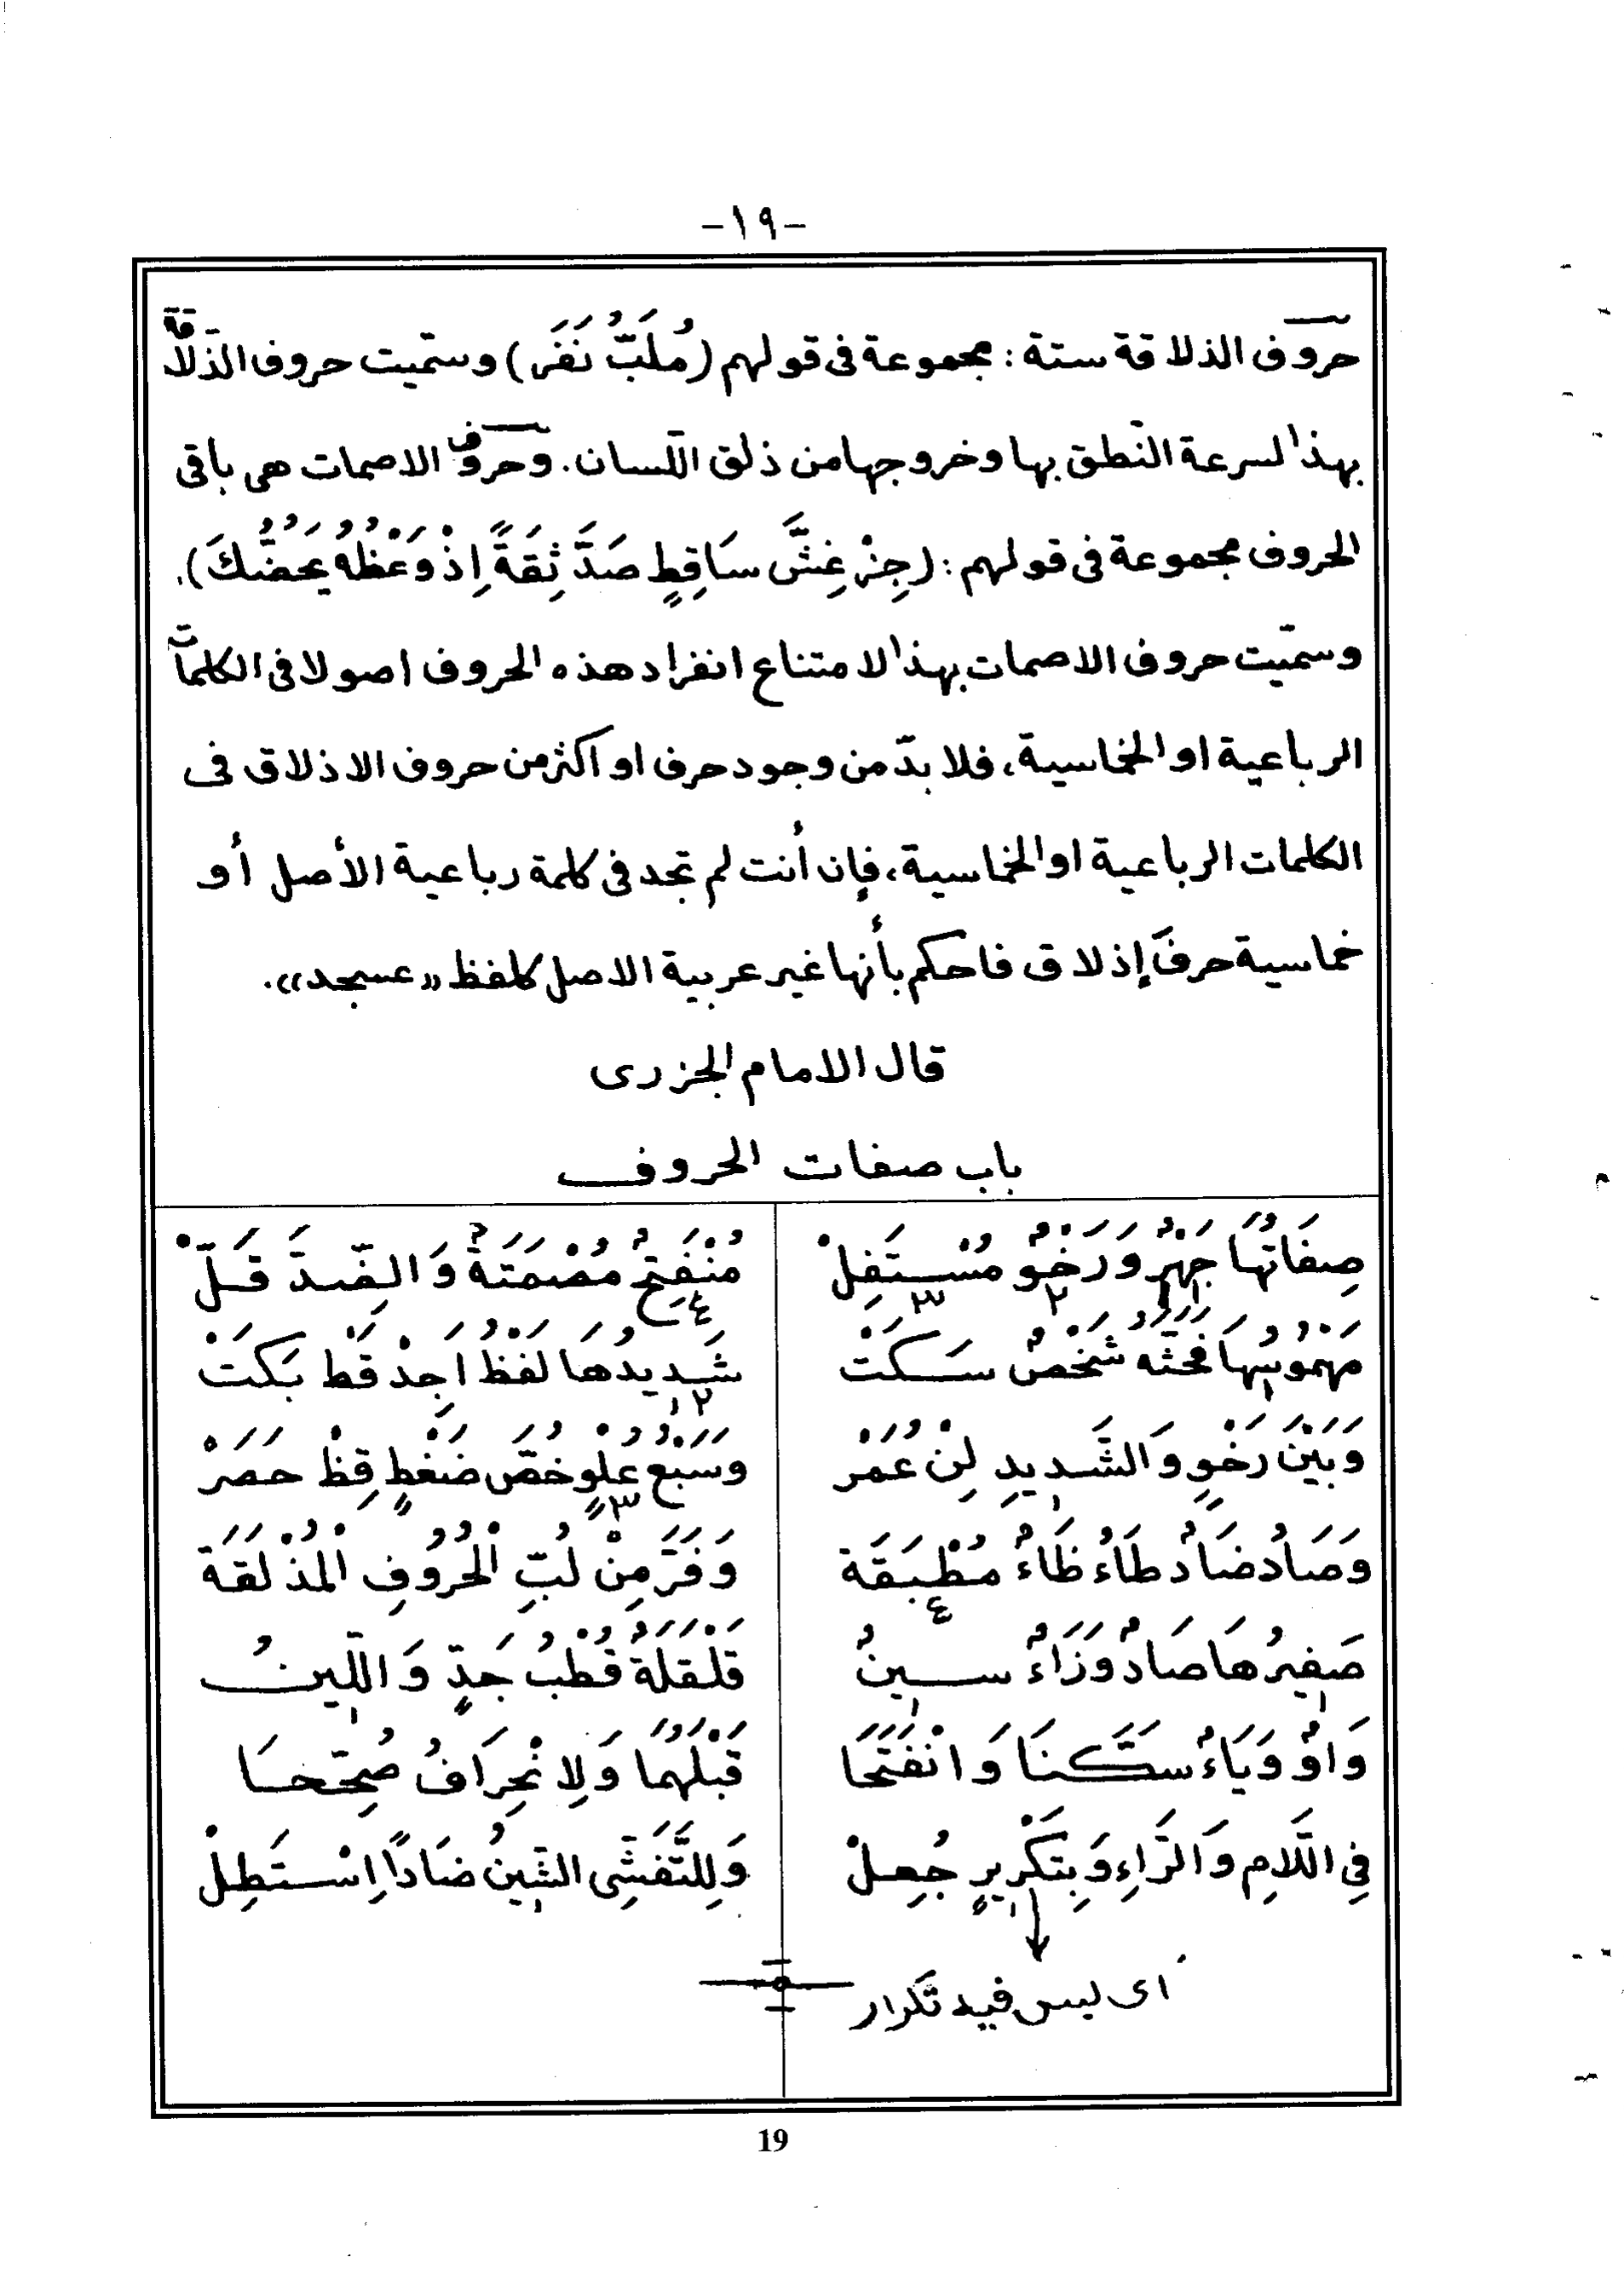 -١٩-
حروف الذلاقة ستة : مجموعة فى قولهم (مُلَبُّ نَفَرَ) وسمّيت حروف الذلاقة
بهذا لسرعة النّطق بها وخروجها من ذلق اللّسان. وحروف الاصمات هى باقى
الحروف مجموعة فى قولهم : (جِزْ غِشَّ سَاقِطٍ صَدَّ ثِقَةً إِذْ وَعْظُهُ يَحُضُّكَ).
وسمّيت حروف الاصمات بهذا لامتناع انفراد هذه الحروف اصولا فى الكلمات
الرباعية او الخماسية، فلا بدّ من وجود حرف او اكثر من حروف الاذلاق فى
الكلمات الرباعية او الخماسية، فإن أنت لم تجد فى كلمة رباعية الأصل أو
خماسية حرفَ إذلاق فاحكم بأنها غير عربية الاصل كلفظ «عسجد».
قال الامام الجزرى
باب صفات الحروف
صِفَاتُهَا جَهْرٌ وَرَخْوٌ مُسْتَفِلْ مُنْفَتِحٌ مُصْمَتَةٌ وَالضِّدَّ قَلّْ
١ ٢ ٣ ٤
مَهْمُوسُهَا فَحَثَّهُ شَخْصٌ سَكَتْ شَدِيدُهَا لَفْظُ اَجِدْ قَطٍ بَكَتْ
١ ٢
وَبَيْنَ رَخْوٍ وَالشَّدِيدِ لِنْ عُمَرْ وَسَبْعُ عُلْوٍ خُصَّ ضَغْطٍ قِظْ حَصَرْ
٣
وَصَادُ ضَادٌ طَاءُ ظَاءٌ مُطْبَقَة وَفَرَّ مِنْ لُبِّ الْحُرُوفِ الْمُذْلَقَة
٤
صَفِيرُهَا صَادٌ وَزَاءٌ سِينٌ قَلْقَلَةٌ قُطْبُ جَدٍّ وَاللِّينُ
وَاوٌ وَيَاءٌ سَكَّنَا وَانْفَتَحَا قَبْلَهُمَا وَلِانْحِرَافُ صُحِّحَا
فِى اللَّامِ وَالرَّاءِ وَبِتَكْرِيرٍ جُعِلْ وَلِلتَّفَشِّى الشِّينُ ضَاداً اِسْتَطِلْ
اى ليس فيه تَكرار
19